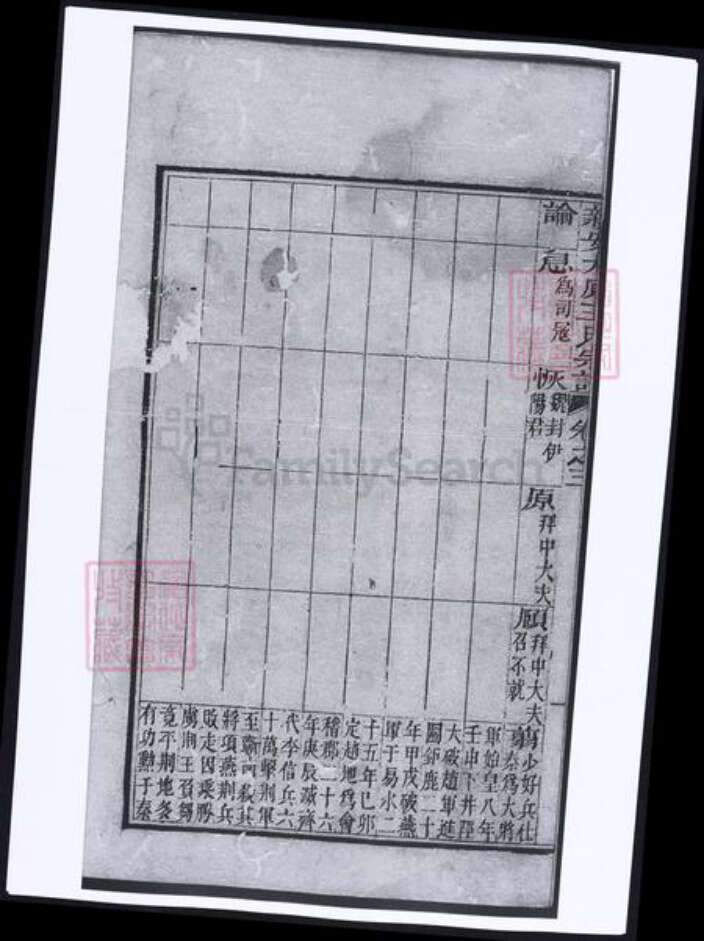 新安太原王氏宗譜 卷之三
論
息 為司寇
恢 魏封伊
陽君
原 拜中大夫
頤 拜中大夫
召不就
翦 少好兵仕
秦為大將
軍始皇八年
壬申下井陘
大破趙軍進
圍鉅鹿二十
年甲戌破燕
軍于易水二
十五年己卯
定趙地為會
稽郡二十六
年庚辰滅齊
代李信兵六
十萬擊荆軍
至蘄南殺其
將項燕荆兵
敗走因乘勝
虜荆王負芻
竟平荆地矣
有功勳于秦
FamilySearch